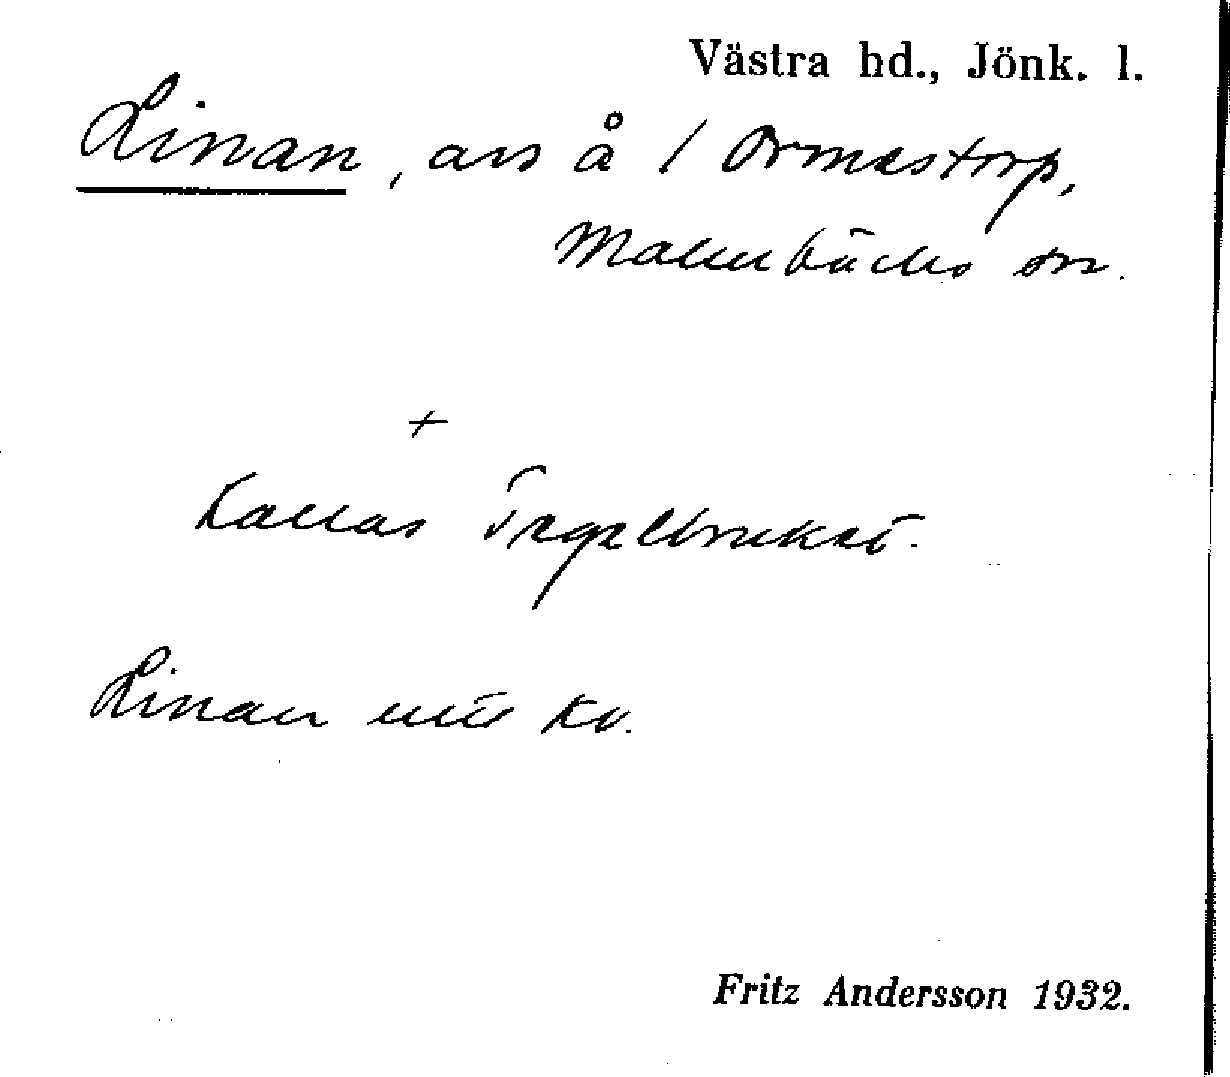 Västra hd., Jönk. l.
Linan, avs å / Ormestorp,
Malmbäcks sn.
+
Kallas Tegelbruket.
Linan utt kv.
Fritz Andersson 1932.